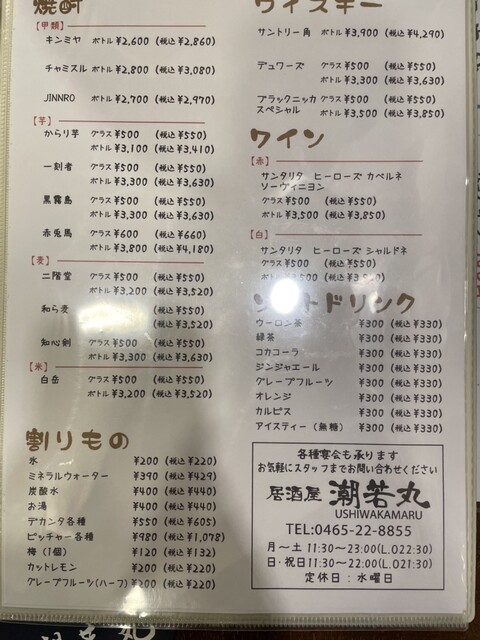 焼酎
【甲類】
キンミヤ ボトル ¥2,600 (税込 ¥2,860)
チャミスル ボトル ¥2,800 (税込 ¥3,080)
JINNRO ボトル ¥2,700 (税込 ¥2,970)
【芋】
からり芋 グラス ¥500 (税込 ¥550)
ボトル ¥3,100 (税込 ¥3,410)
一刻者 グラス ¥500 (税込 ¥550)
ボトル ¥3,300 (税込 ¥3,630)
黒霧島 グラス ¥500 (税込 ¥550)
ボトル ¥3,300 (税込 ¥3,630)
赤兎馬 グラス ¥600 (税込 ¥660)
ボトル ¥3,800 (税込 ¥4,180)
【麦】
二階堂 グラス ¥500 (税込 ¥550)
ボトル ¥3,200 (税込 ¥3,520)
和ら麦 (税込 ¥550)
(税込 ¥3,520)
知心剣 グラス ¥500 (税込 ¥550)
ボトル ¥3,300 (税込 ¥3,630)
【米】
白岳 グラス ¥500 (税込 ¥550)
ボトル ¥3,200 (税込 ¥3,520)
割りもの
氷 ¥200 (税込 ¥220)
ミネラルウォーター ¥390 (税込 ¥429)
炭酸水 ¥400 (税込 ¥440)
お湯 ¥400 (税込 ¥440)
デカンタ各種 ¥550 (税込 ¥605)
ピッチャー各種 ¥980 (税込 ¥1,078)
梅(1個) ¥120 (税込 ¥132)
カットレモン ¥200 (税込 ¥220)
グレープフルーツ(ハーフ) ¥200 (税込 ¥220)
ウイスキー
サントリー角 ボトル ¥3,900 (税込 ¥4,290)
デュワーズ グラス ¥500 (税込 ¥550)
ボトル ¥3,300 (税込 ¥3,630)
ブラックニッカ グラス ¥500 (税込 ¥550)
スペシャル ボトル ¥3,500 (税込 ¥3,850)
ワイン
【赤】
サンタリタ ヒーローズ カベルネ
ソーヴィニヨン
グラス ¥500 (税込 ¥550)
ボトル ¥3,500 (税込 ¥3,850)
【白】
サンタリタ ヒーローズ シャルドネ
グラス ¥500 (税込 ¥550)
ソフトドリンク
ウーロン茶 ¥300 (税込 ¥330)
緑茶 ¥300 (税込 ¥330)
コカコーラ ¥300 (税込 ¥330)
ジンジャエール ¥300 (税込 ¥330)
グレープフルーツ ¥300 (税込 ¥330)
オレンジ ¥300 (税込 ¥330)
カルピス ¥300 (税込 ¥330)
アイスティー(無糖) ¥300 (税込 ¥330)
各種宴会も承ります
お気軽にスタッフまでお問い合わせください
居酒屋 潮若丸
USHIWAKAMARU
TEL:0465-22-8855
月〜土 11:30〜23:00(L.O22:30)
日・祝日 11:30〜22:00(L.O21:30)
定休日:水曜日